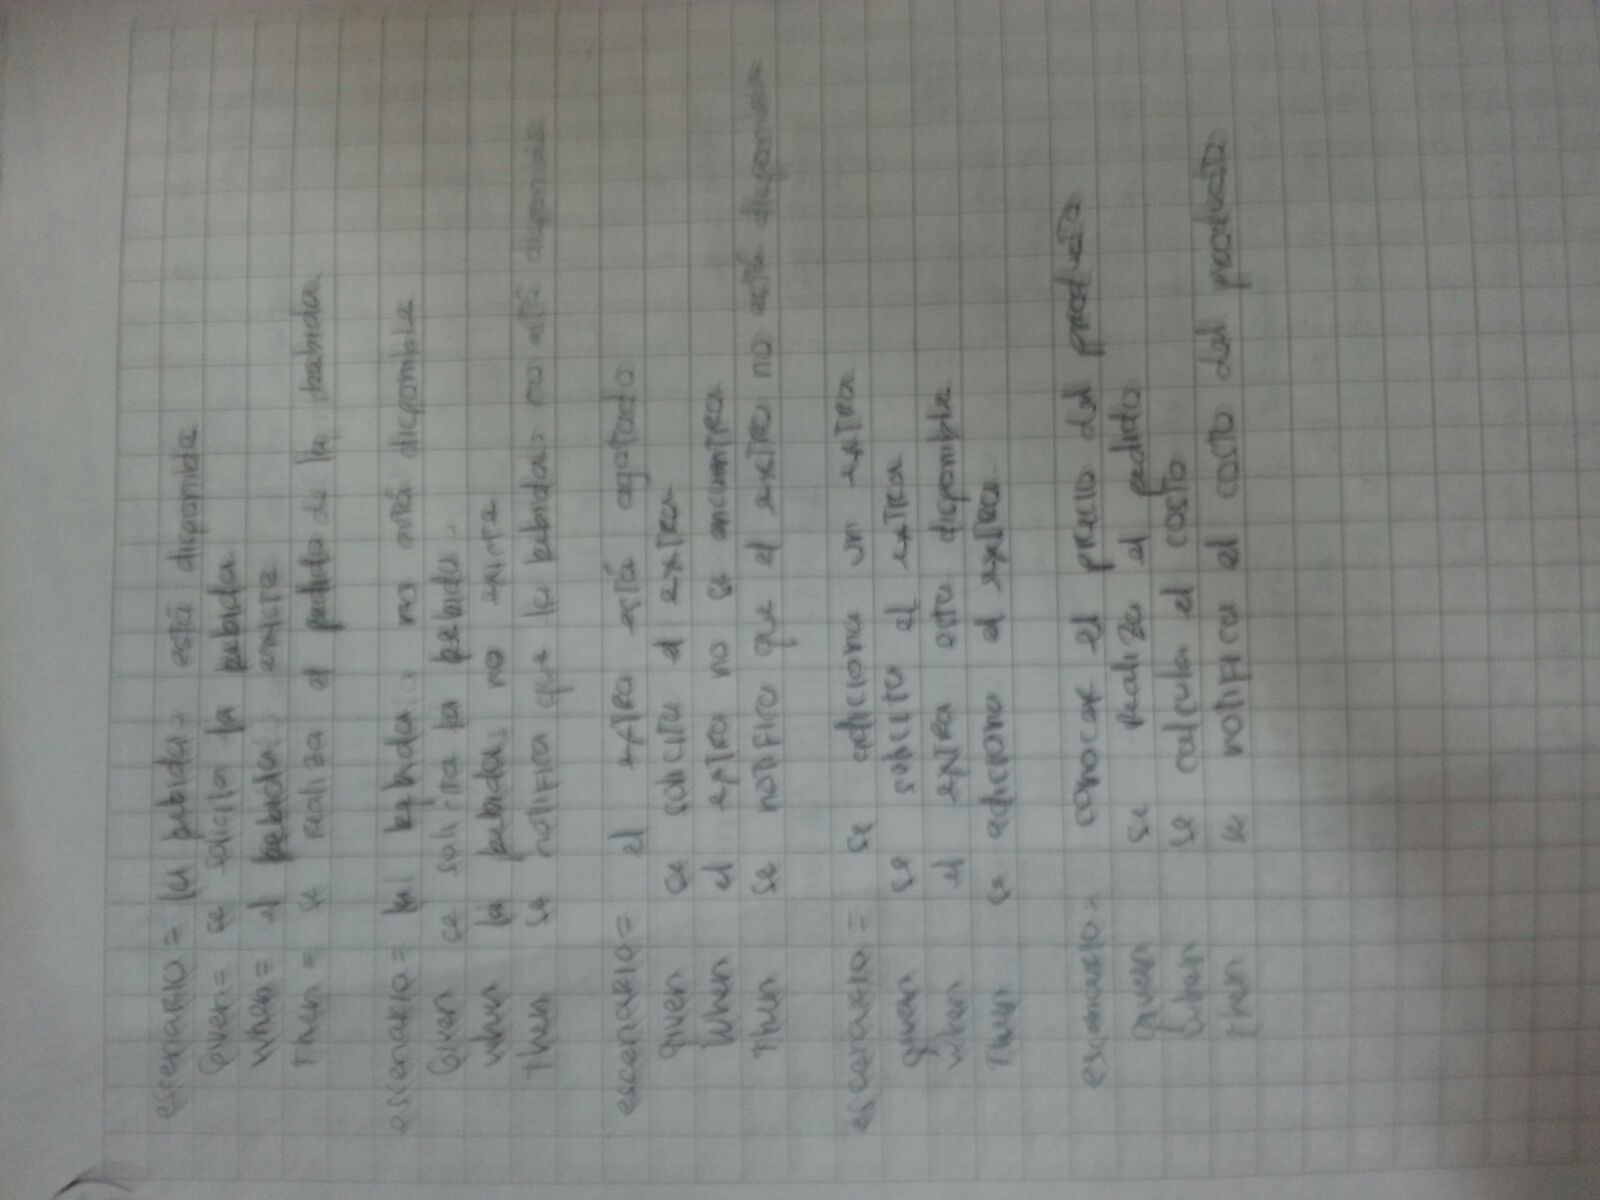 escenario = la bebida está disponible
Given = se solicita la bebida
When = el bebida existe
Then = se realiza el pedido de la bebida
escenario = la bebida no está disponible
Given se solicita la bebida
When la bebida no existe
Then se notifica que la bebida no está disponible
escenario = el extra está agotado
given se solicita el extra
When el extra no se encuentra
Then se notifica que el extro no está disponible
escenario = se adiciona un extra
given se solicita el extra
when el extra esta disponible
Then se adiciona el extra
escenario = conocer el precio del producto
given se realiza el pedido
When se calcula el costo
Then se notifica el costo del producto